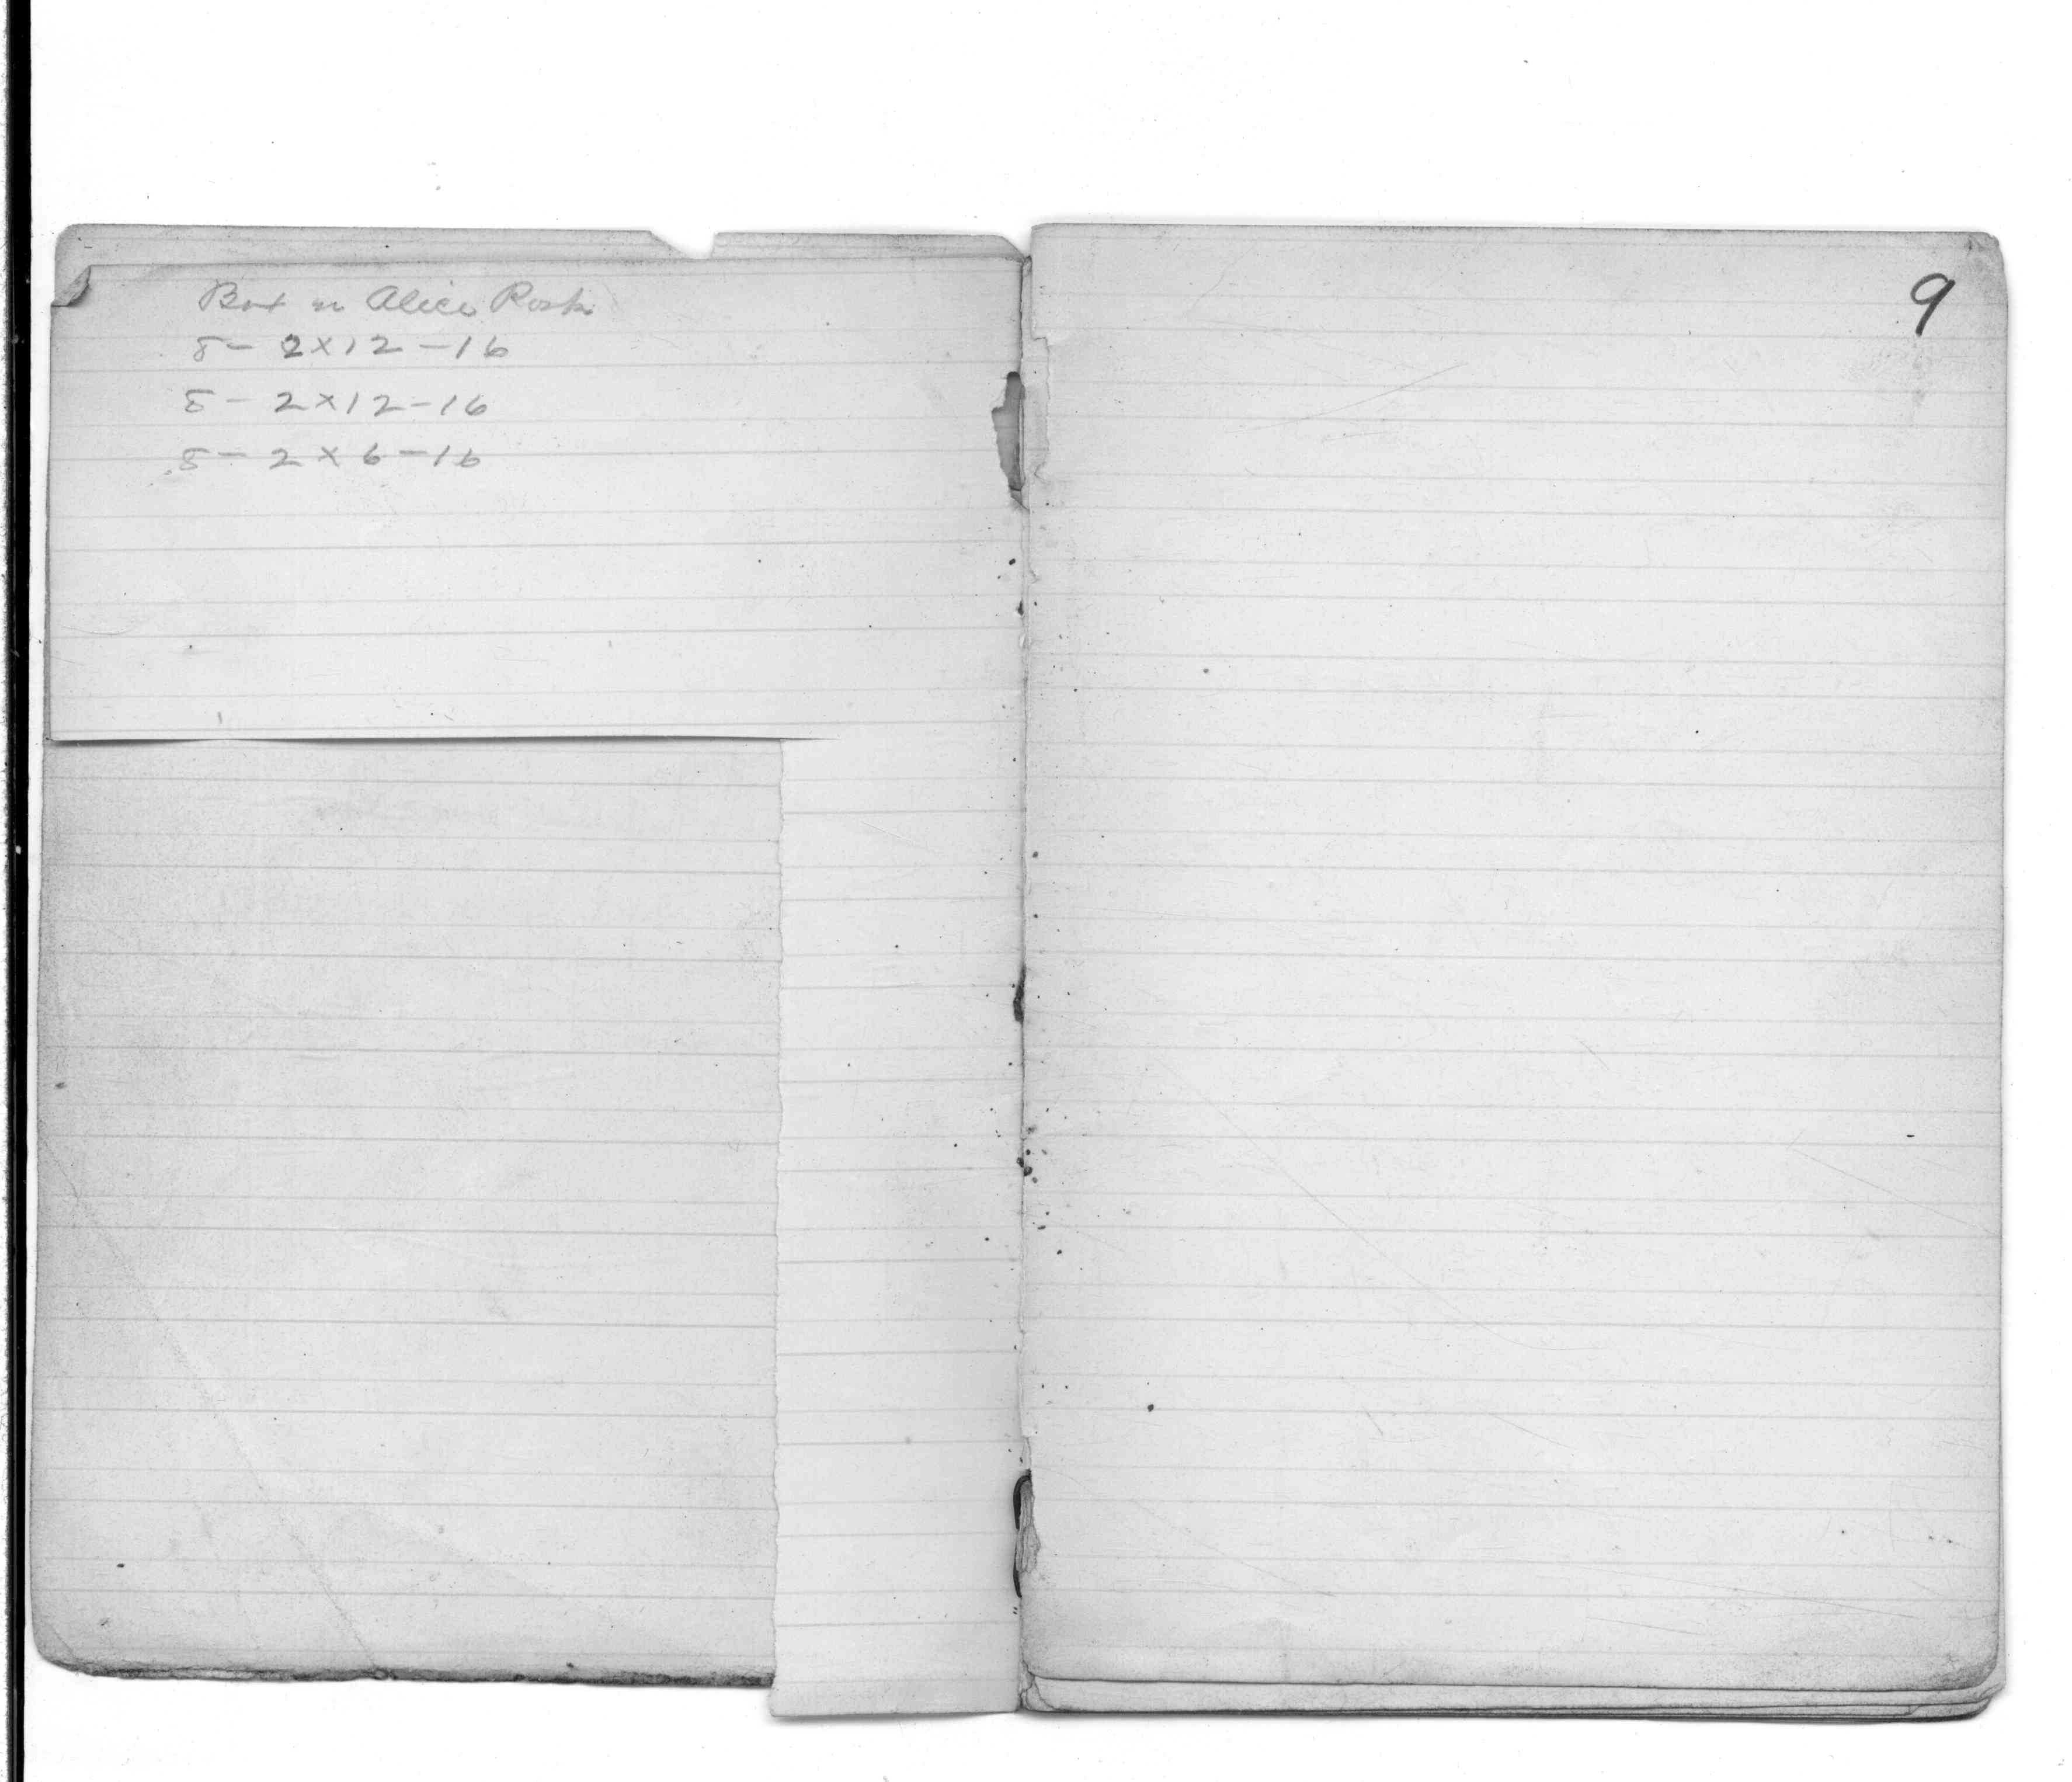 Box on Alice Rock
8 - 2 x 12 - 16
8 - 2 x 12 - 16
8 - 2 x 6 - 16
9